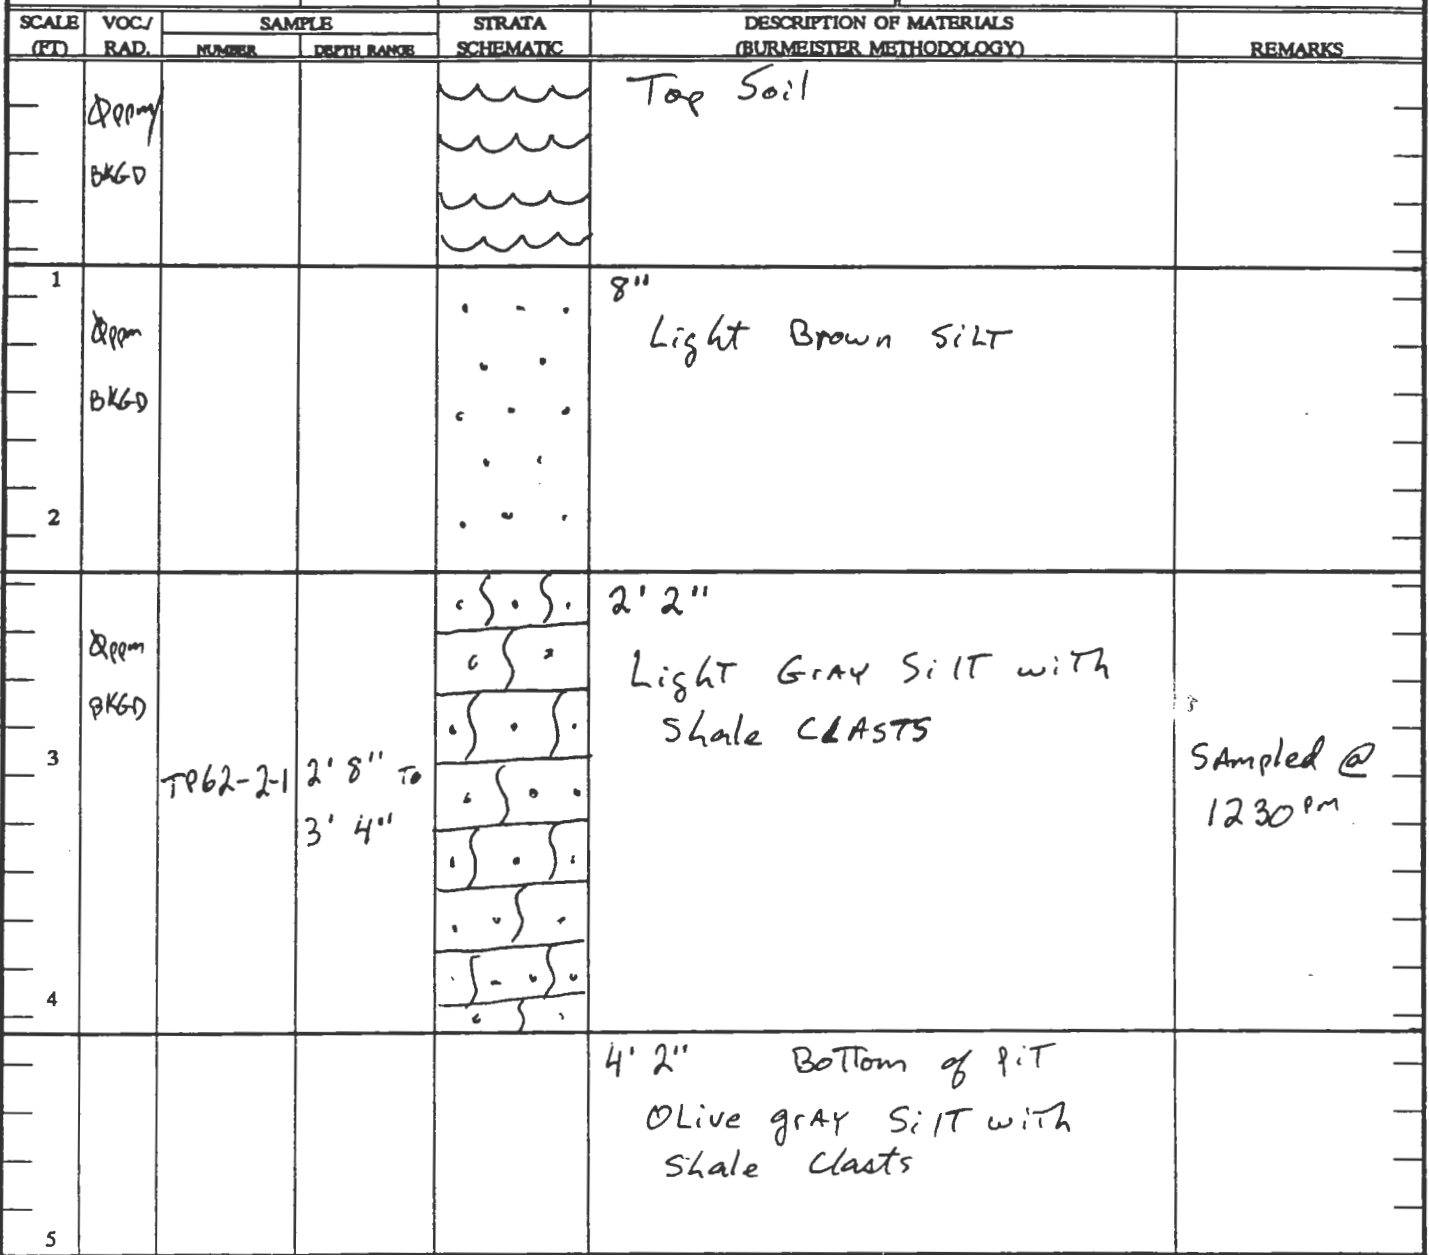 SCALE (FT) VOC./ RAD. SAMPLE NUMBER DEPTH RANGE STRATA SCHEMATIC DESCRIPTION OF MATERIALS (BURMEISTER METHODOLOGY) REMARKS
Øppm/
BKGD
Top Soil
1
8"
Øppm
BKGD
Light Brown SiLT
2
2' 2"
Øppm
BKGD
Light GrAY SilT with
Shale CLASTS
3
TP62-2-1
2' 8" To
3' 4"
SAmpled @
1230 PM
4
4' 2" BoTTom of PiT
OLive grAY SilT with
Shale Clasts
5